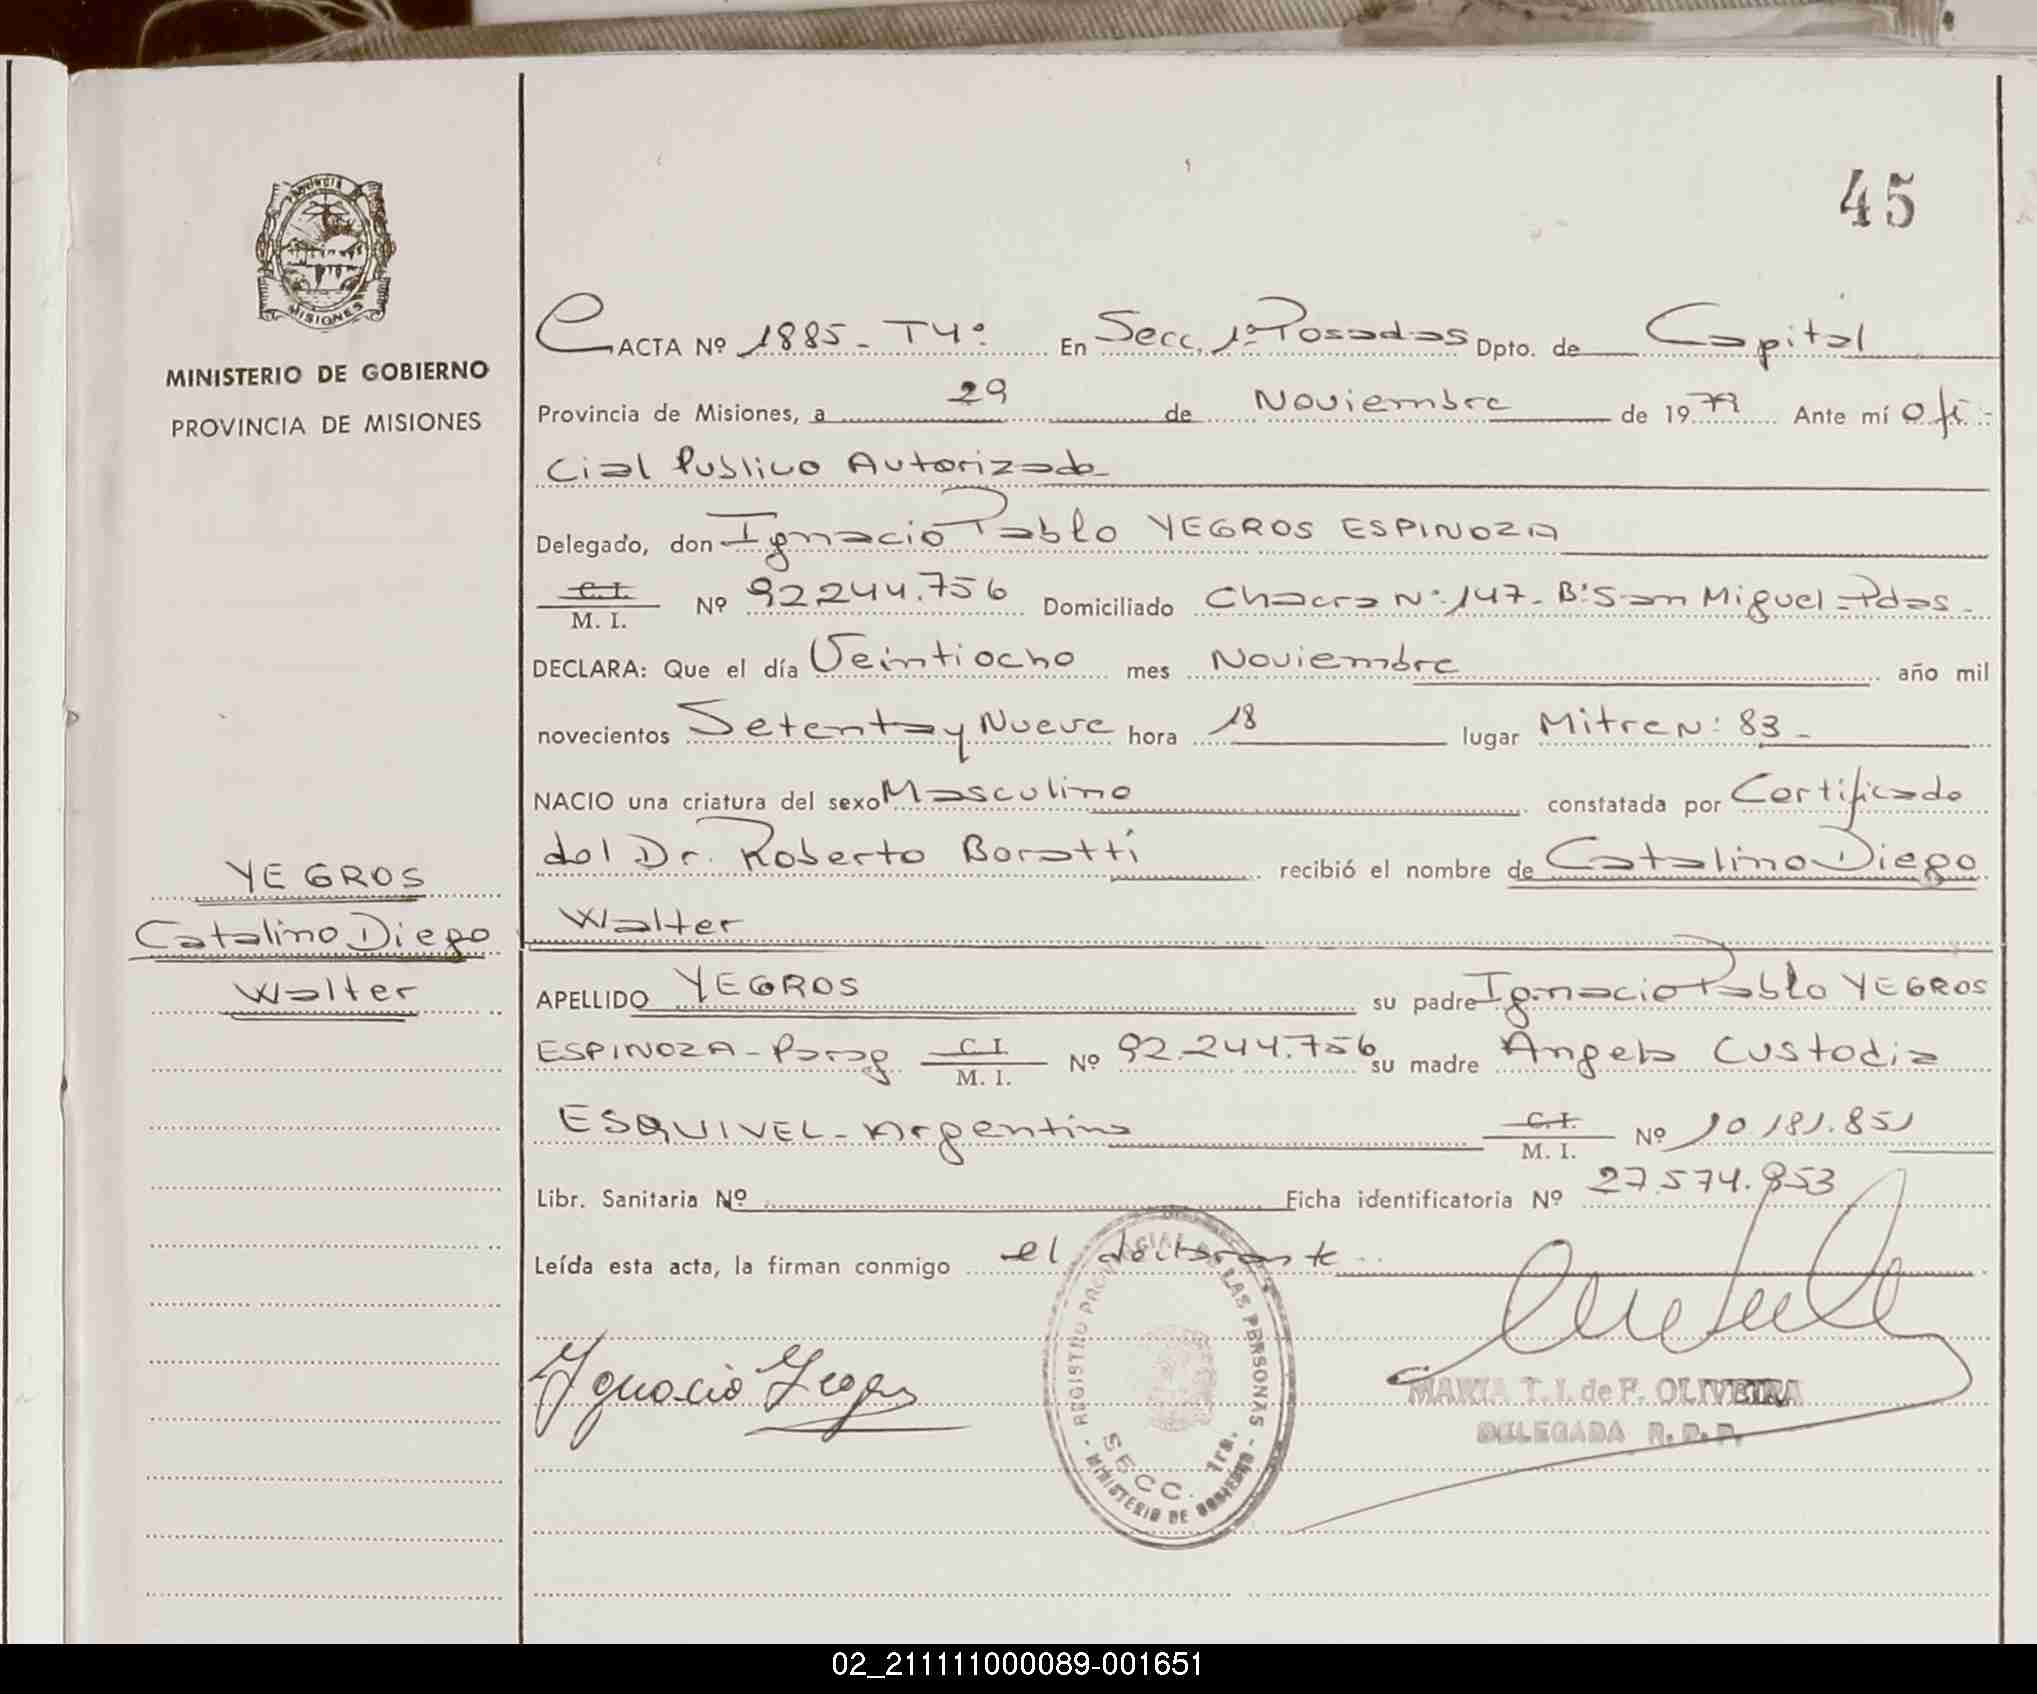 45
PROVINCIA
MISIONES
MINISTERIO DE GOBIERNO
PROVINCIA DE MISIONES
YEGROS
Catalino Diego
Walter
ACTA Nº 1885 - Tº 4º En Secc. 1º Posadas Dpto. de Capital
Provincia de Misiones, a 29 de Noviembre de 1979 Ante mí Ofi-
cial Publico Autorizado
Delegado, don Ignacio Pablo YEGROS ESPINOZA
C.I. / M. I. Nº 92.244.756 Domiciliado Chacra Nº 147 - Bº San Miguel - Pdas -
DECLARA: Que el día Veintiocho mes Noviembre año mil
novecientos Setenta y Nueve hora 18 lugar Mitre Nº 83 -
NACIO una criatura del sexo Masculino constatada por Certificado
del Dr. Roberto Boratti recibió el nombre de Catalino Diego
Walter
APELLIDO YEGROS su padre Ignacio Pablo YEGROS
ESPINOZA - Parag C.I. / M. I. Nº 92.244.756 su madre Angela Custodia
ESQUIVEL - Argentina C.I. / M. I. Nº 10.181.851
Libr. Sanitaria Nº Ficha identificatoria Nº 27.574.853
Leída esta acta, la firman conmigo el declarante
Ignacio Yegros
REGISTRO PROVINCIAL DE LAS PERSONAS
SECC. 1ra.
- MINISTERIO DE GOBIERNO -
MARIA T. I. de F. OLIVEIRA
DELEGADA R. P. P.
02_211111000089-001651